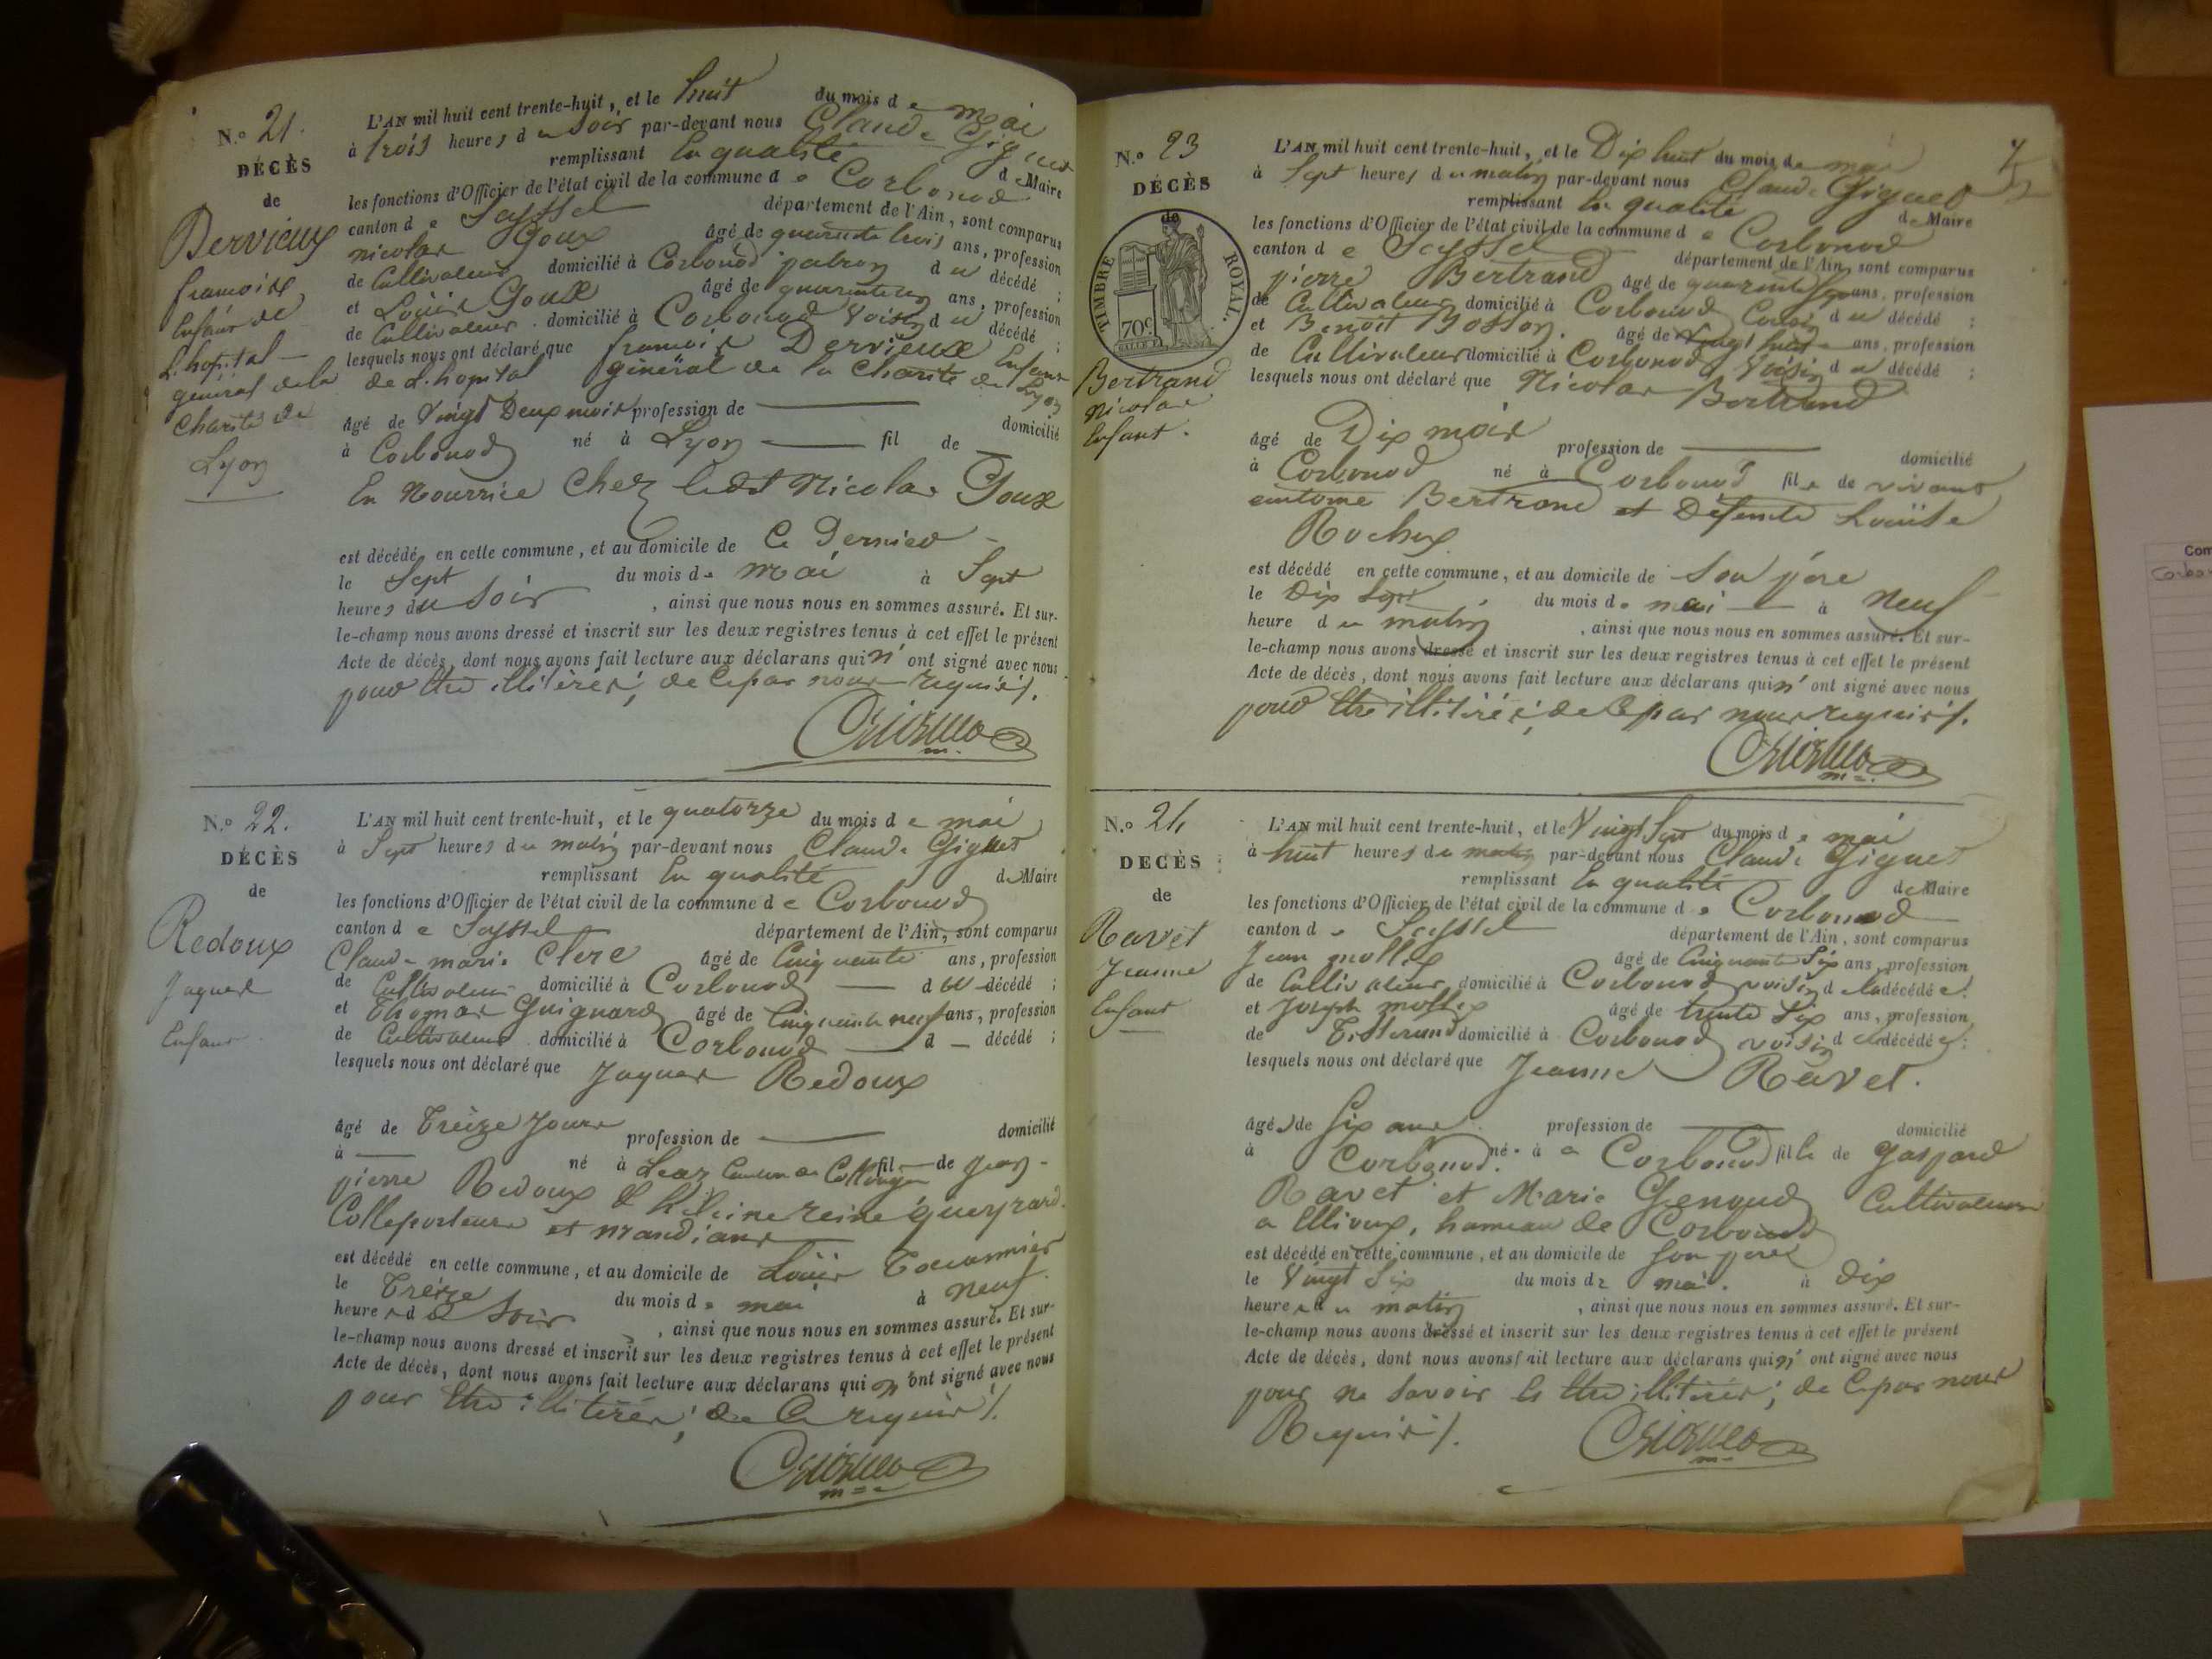 N.° 21.
DÉCÈS
de
Dervieux
francoise
Enfant de
L. hopital
général de la
Charité de
Lyon
L'AN mil huit cent trente-huit, et le huit du mois de mai
à trois heures du soir par-devant nous Claude Giguet
remplissant En qualité de Maire
les fonctions d'Officier de l'état civil de la commune de Corbonod
canton de Seyssel département de l'Ain, sont comparus
nicolas Goux âgé de quarante trois ans, profession
de Cultivateur domicilié à Corbonod patron du décédé ;
et Louis Goux âgé de ans, profession
de Cultivateur domicilié à Corbonod Voisin du décédé ;
lesquels nous ont déclaré que francois Dervieux Enfant
de L. hopital général de la Charité de Lyon
âgé de Vingt Deux mois profession de domicilié
à Corbonod né à Lyon fil de
En Nourrice Chez ledit Nicolas Goux
est décédé en cette commune, et au domicile de Ce Dernier
le Sept du mois de mai à Sept
heures du Soir, ainsi que nous nous en sommes assuré. Et sur-
le-champ nous avons dressé et inscrit sur les deux registres tenus à cet effet le présent
Acte de décès, dont nous avons fait lecture aux déclarans qui n' ont signé avec nous
pour être illitérés, de Ce par nous requis /.
N.° 22.
DÉCÈS
de
Redoux
Jaques
Enfant
L'AN mil huit cent trente-huit, et le quatorze du mois de mai
à Sept heures du matin par-devant nous Claude Giguet
remplissant En qualité de Maire
les fonctions d'Officier de l'état civil de la commune de Corbonod
canton de Seyssel département de l'Ain, sont comparus
Claude marie Clerc âgé de Cinquante ans, profession
de Cultivateur domicilié à Corbonod du décédé ;
et Thomas Guignard âgé de Cinquante neuf ans, profession
de Cultivateur domicilié à Corbonod d décédé ;
lesquels nous ont déclaré que Jaques Redoux
âgé de Treize Jours profession de domicilié
à né à Leaz Commune de fil de Jean
pierre Redoux et reine
Colleporteurs et mandiant
est décédé en cette commune, et au domicile de Louis
le Treize du mois de mai à neuf
heures du Soir, ainsi que nous nous en sommes assuré. Et sur-
le-champ nous avons dressé et inscrit sur les deux registres tenus à cet effet le présent
Acte de décès, dont nous avons fait lecture aux déclarans qui n' ont signé avec nous
pour être illitérés, de Ce requis /.
N.° 23
DÉCÈS
de
TIMBRE ROYAL.
70c
Bertrand
Nicolas
Enfant.
L'AN mil huit cent trente-huit, et le Dix huit du mois de mai
à Sept heures du matin par-devant nous Claude Giguet
remplissant En qualité de Maire
les fonctions d'Officier de l'état civil de la commune de Corbonod
canton de Seyssel département de l'Ain, sont comparus
pierre Bertrand âgé de quarante ans, profession
de Cultivateur domicilié à Corbonod Cousin du décédé ;
et Benoit Bosson. âgé de Vingt huit ans, profession
de Cultivateur domicilié à Corbonod Voisin du décédé ;
lesquels nous ont déclaré que Nicolas Bertrand
âgé de Dix mois profession de domicilié
à Corbonod né à Corbonod fils de vivant
antoine Bertrand et Défunte Louïse
Rochex
est décédé en cette commune, et au domicile de Son père
le Dix Sept du mois de mai à Neuf
heure du matin, ainsi que nous nous en sommes assuré. Et sur-
le-champ nous avons dressé et inscrit sur les deux registres tenus à cet effet le présent
Acte de décès, dont nous avons fait lecture aux déclarans qui n' ont signé avec nous
pour être illitérés, de Ce par nous requis /.
N.° 24
DÉCÈS
de
Ravet
Jeanne
Enfant
L'AN mil huit cent trente-huit, et le Vingt Sept du mois de mai
à huit heures du matin par-devant nous Claude Giguet
remplissant En qualité de Maire
les fonctions d'Officier de l'état civil de la commune de Corbonod
canton de Seyssel département de l'Ain, sont comparus
Jean mollex âgé de Cinquante Six ans, profession
de Cultivateur domicilié à Corbonod voisin de la décédée ;
et Joseph mollex âgé de trente Six ans, profession
de Tisserand domicilié à Corbonod voisin de la décédée ;
lesquels nous ont déclaré que Jeanne Ravet.
âgée de Six ans profession de domicilié
à Corbonod. née à Corbonod fille de Gaspard
Ravet et Marie Genoud Cultivateurs
a Ellioux, hameau de Corbonod
est décédé en cette commune, et au domicile de Son père
le Vingt Six du mois de mai. à Dix
heures du matin, ainsi que nous nous en sommes assuré. Et sur-
le-champ nous avons dressé et inscrit sur les deux registres tenus à cet effet le présent
Acte de décès, dont nous avons fait lecture aux déclarans qui n' ont signé avec nous
pour ne Savoir Et être illitérés ; de Ce par nous
Requis /.